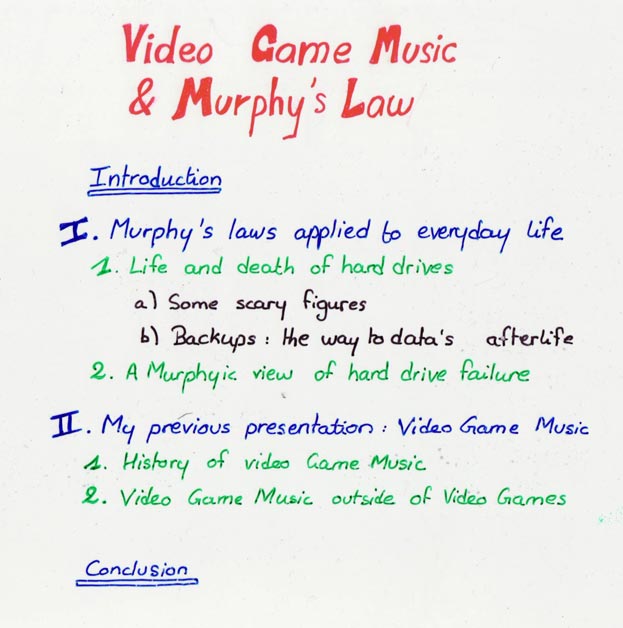 Video Game Music
& Murphy's Law
Introduction
I. Murphy's laws applied to everyday life
1. Life and death of hard drives
a) Some scary figures
b) Backups : the way to data's afterlife
2. A Murphyic view of hard drive failure
II. My previous presentation : Video Game Music
1. History of video Game Music
2. Video Game Music outside of Video Games
Conclusion